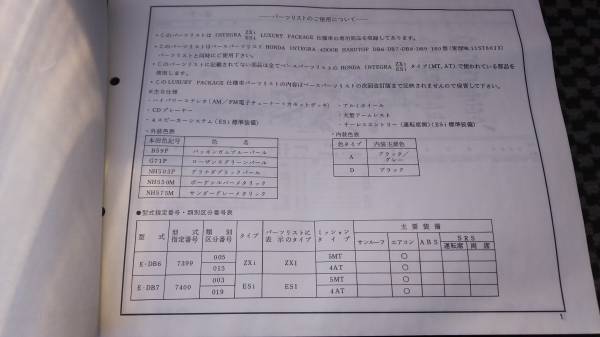 パーツリストのご使用について
・このパーツリストは INTEGRA ZXi ESi LUXURY PACKAGE 仕様車の専用部品を収録してあります。
・このパーツリストはベースパーツリスト HONDA INTEGRA 4DOOR HARDTOP DB6·DB7·DB8·DB9-160
パーツリストと同時にご使用下さい。
・このパーツリストに記載されてない部品は全てベースパーツリストの HONDA INTEGRA ZXi ESi タイプ(MT, AT)で使われている部品を
使用します。
・このLUXURY PACKAGE 仕様車パーツリストの内容はベースパーツリストの次回改訂版まで反映されませんので保管して下さい。
※主な仕様
・ハイパワーコンナエレ(AM/FM電子チューナー+カセットデッキ) ・アルミホイール
・CDプレーヤー ・大型アームレスト
・4スピーカーシステム(ESi 標準装備) ・キーレスエントリー(運転席側)(ESi 標準装備)
・外装色表 ・内装色表
本田色記号 色 名
B59P バッキンガムブルーパール
G71P ローザンヌグリーンパール
NH503P グラナダブラックパール
NH550M ボーグシルバーメタリック
NH575M サンダーグレーメタリック
色タイプ 内装主要色
A ブラック/グレー
D ブラック
●型式指定番号・類別区分番号表
型 式 型 式 指定番号 類 別 区分番号 タイプ パーツリストに 表 示 のタイプ ミッション タ イ プ 主 要 装 備
サンルーフ エアコン ABS SRS
運転席 両 席
E-DB6 7399 005 ZXi ZXI 5MT ○
013 4AT ○
E-DB7 7400 003 ESi ESI 5MT ○
019 4AT ○
1